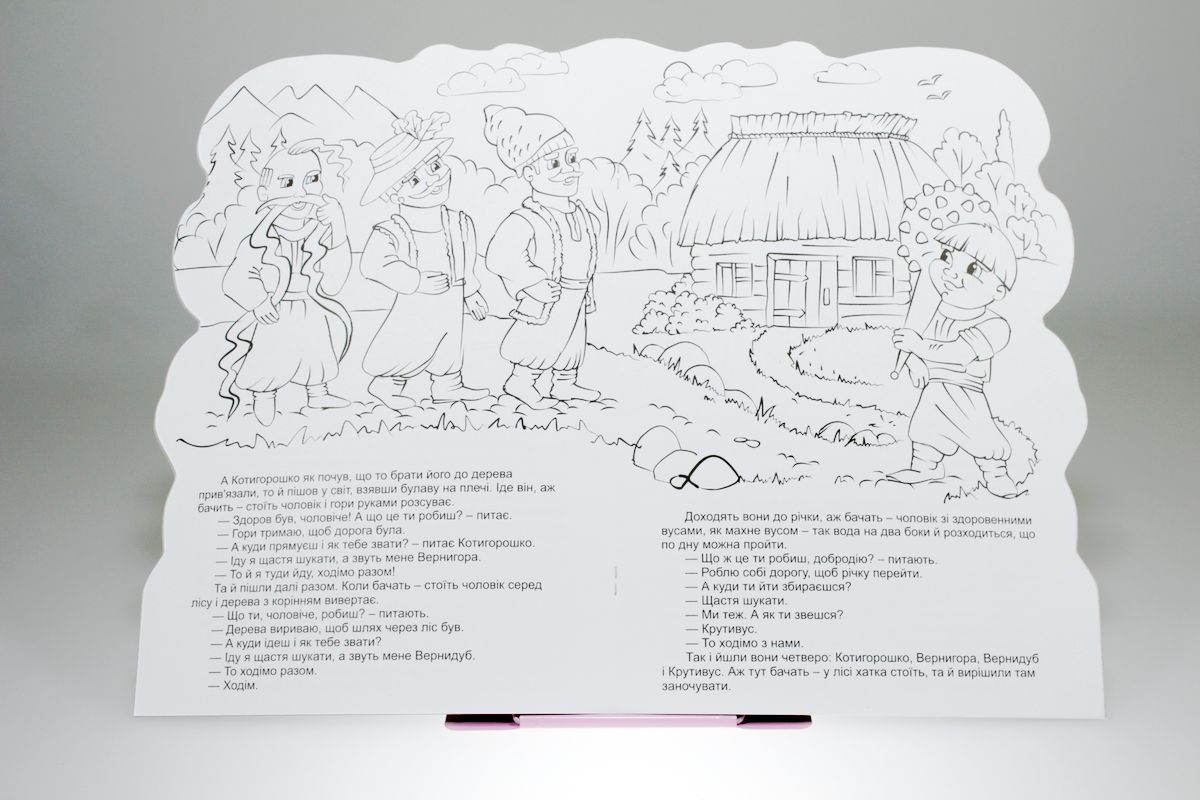 А Котигорошко як почув, що то брати його до дерева
прив'язали, то й пішов у світ, взявши булаву на плечі. Іде він, аж
бачить – стоїть чоловік і гори руками розсуває.
— Здоров був, чоловіче! А що це ти робиш? – питає.
— Гори тримаю, щоб дорога була.
— А куди прямуєш і як тебе звати? – питає Котигорошко.
— Іду я щастя шукати, а звуть мене Вернигора.
— То й я туди йду, ходімо разом!
Та й пішли далі разом. Коли бачать – стоїть чоловік серед
лісу і дерева з корінням вивертає.
— Що ти, чоловіче, робиш? – питають.
— Дерева вириваю, щоб шлях через ліс був.
— А куди ідеш і як тебе звати?
— Іду я щастя шукати, а звуть мене Вернидуб.
— То ходімо разом.
— Ходім.
Доходять вони до річки, аж бачать – чоловік зі здоровенними
вусами, як махне вусом – так вода на два боки й розходиться, що
по дну можна пройти.
— Що ж це ти робиш, добродію? – питають.
— Роблю собі дорогу, щоб річку перейти.
— А куди ти йти збираєшся?
— Щастя шукати.
— Ми теж. А як ти звешся?
— Крутивус.
— То ходімо з нами.
Так і йшли вони четверо: Котигорошко, Вернигора, Вернидуб
і Крутивус. Аж тут бачать – у лісі хатка стоїть, та й вирішили там
заночувати.